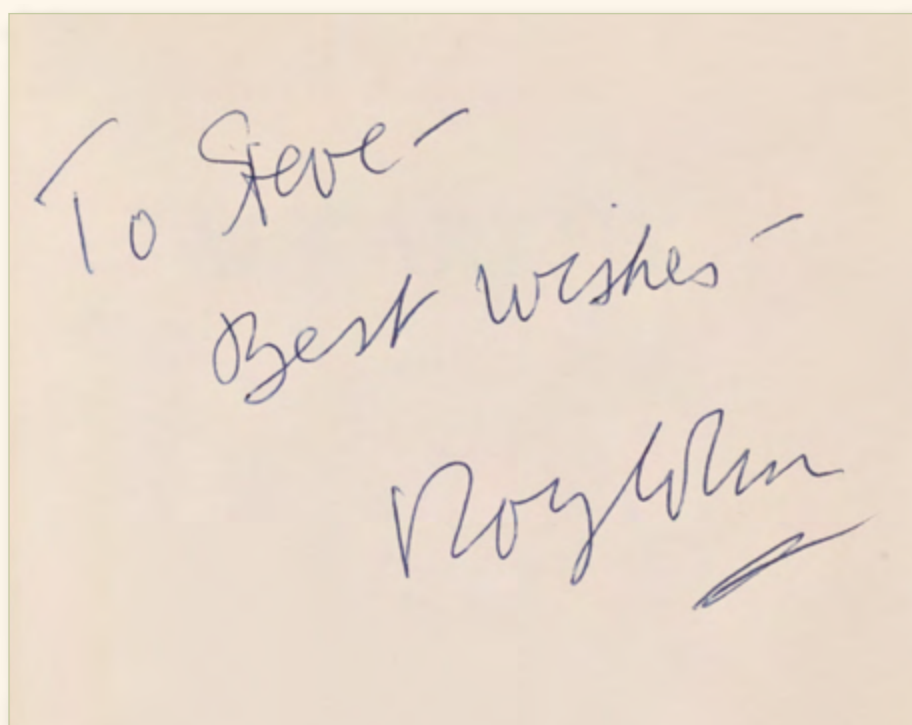 To Steve -
Best Wishes -
Roy Cohn